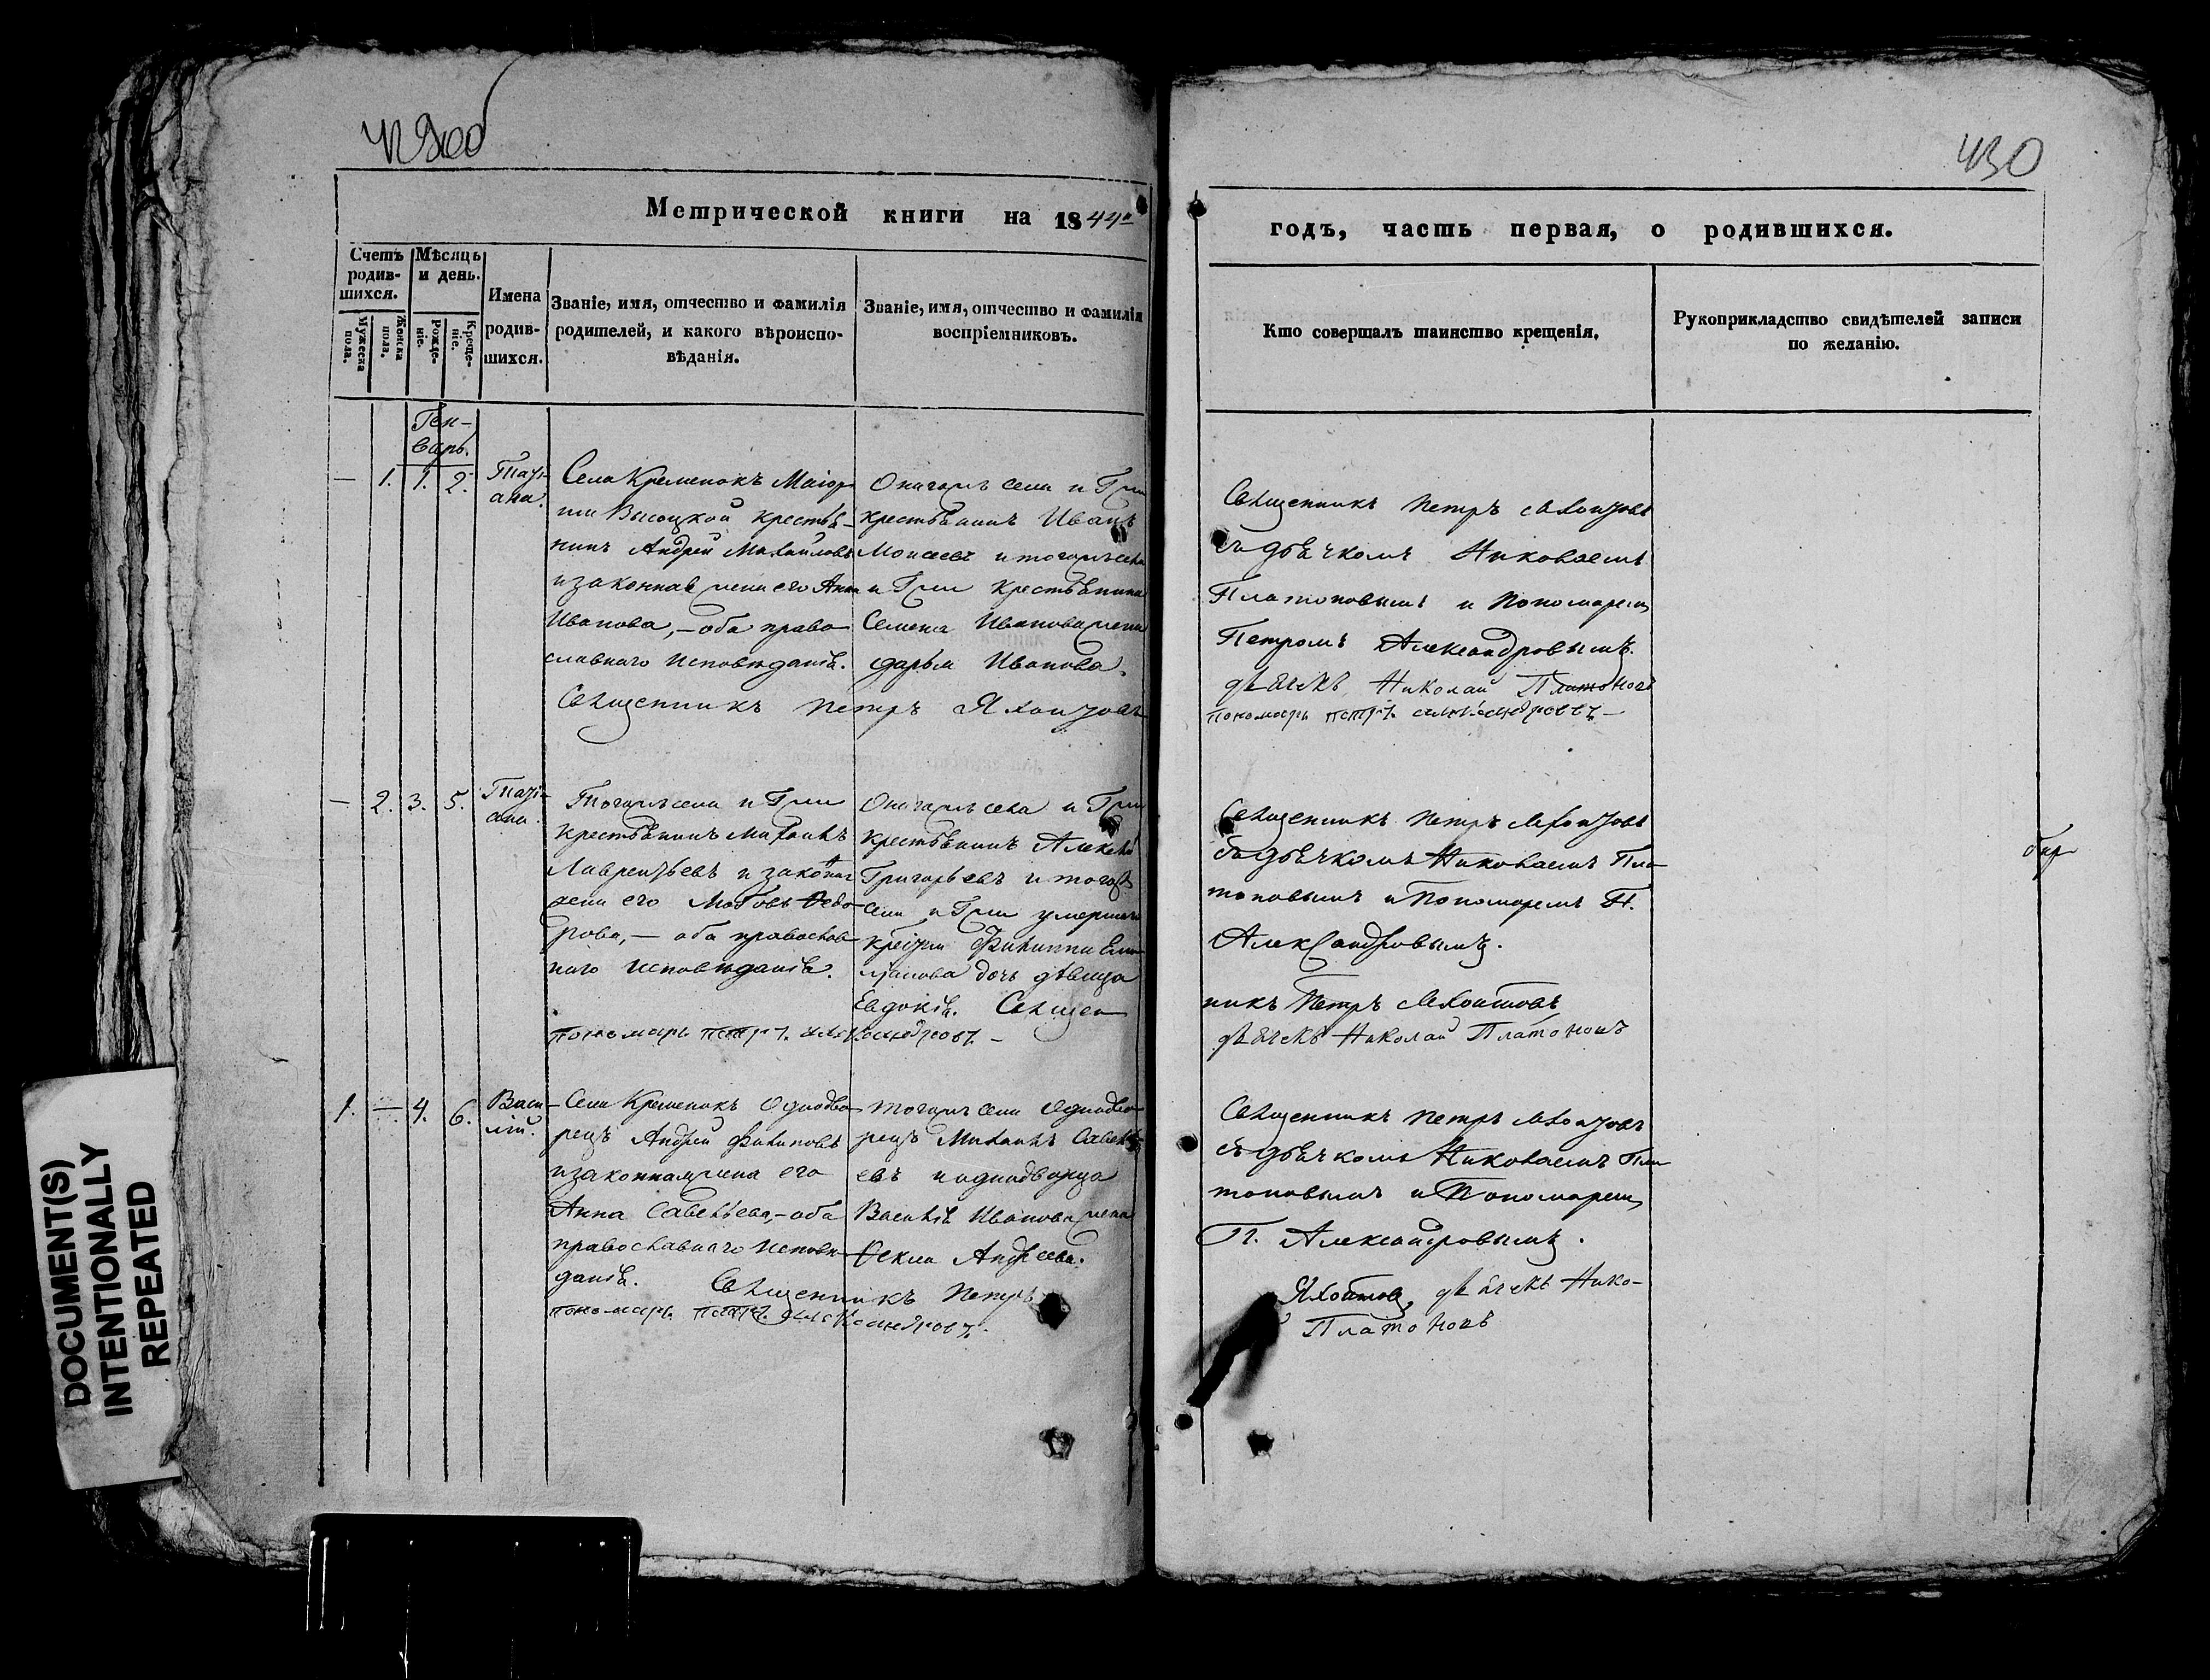 430
Метрической книги на 1844й
годъ, часть первая, о родившихся.
Счетъ родив-
шихся.
Мужеска пола.
Женска пола.
Мѣсяцъ и день.
Рожде-
ніе.
Креще-
ніе.
Имена
родив-
шихся.
Званіе, имя, отчество и фамилія
родителей, и какого вѣроиспо-
вѣданія.
Званіе, имя, отчество и фамилія
воспріемниковъ.
Кто совершалъ таинство крещенія.
Рукоприкладство свидѣтелей записи
по желанію.
Ген-
варь.
— 1. 1. 2.
Тать-
ана.
Села Кременокъ Маіор
ши Высоцкой крестья-
нинъ Андрей Михайловъ
и законная жена его Анна
Иванова, — оба право
славнаго исповѣданія.
Онагожъ села и Гжи
крестьянинъ Иванъ
Моисеевъ и тогожъ села
и Гжи крестьянина
Семена Иванова жена
дарья Иванова.
Священникъ Петръ
Священникъ Петръ
съ дьячкомъ Николаемъ
Платоновымъ и Пономарем
Петромъ Александровымъ.
дьячекъ Николай Платоновъ
пономарь петръ александровъ —
— 2. 3. 5.
Тать-
ана.
Тогожъ села и Гжи
крестьянинъ Михаилъ
Лаврентьевъ и законая
жена его Любовь Ѳедо
рова, — оба православ
наго исповѣданія.
Онагожъ села и Гжи
крестьянинъ Алексѣй
Григорьевъ и тогожъ
села и Гжи умершаго
Филиппа Еме
льянова дочь дѣвица
Евдокія. Священ
пономарь петръ александровъ. —
Священникъ Петръ
съ дьячкомъ Николаемъ Пла
тоновымъ и Пономаремъ П.
Александровымъ.
никъ Петръ
дьячекъ Николай Платоновъ
1. — 4. 6.
Васи-
лій.
Села Кременокъ Однодво
рецъ Андрей Филиповъ
и законная жена его
Анна Савельева, — оба
православнаго исповѣ
данія.
Тогожъ села Однодво
рецъ Михаилъ Савель
евъ и однодворца
Василія Иванова жена
Ѳекла Андреева.
Священникъ Петръ
пономарь петръ александровъ.
Священникъ Петръ
съ дьячкомъ Николаемъ Пла
тоновымъ и Пономарем
П. Александровымъ.
дьячекъ Нико-
Платоновъ
DOCUMENT(S)
INTENTIONALLY
REPEATED